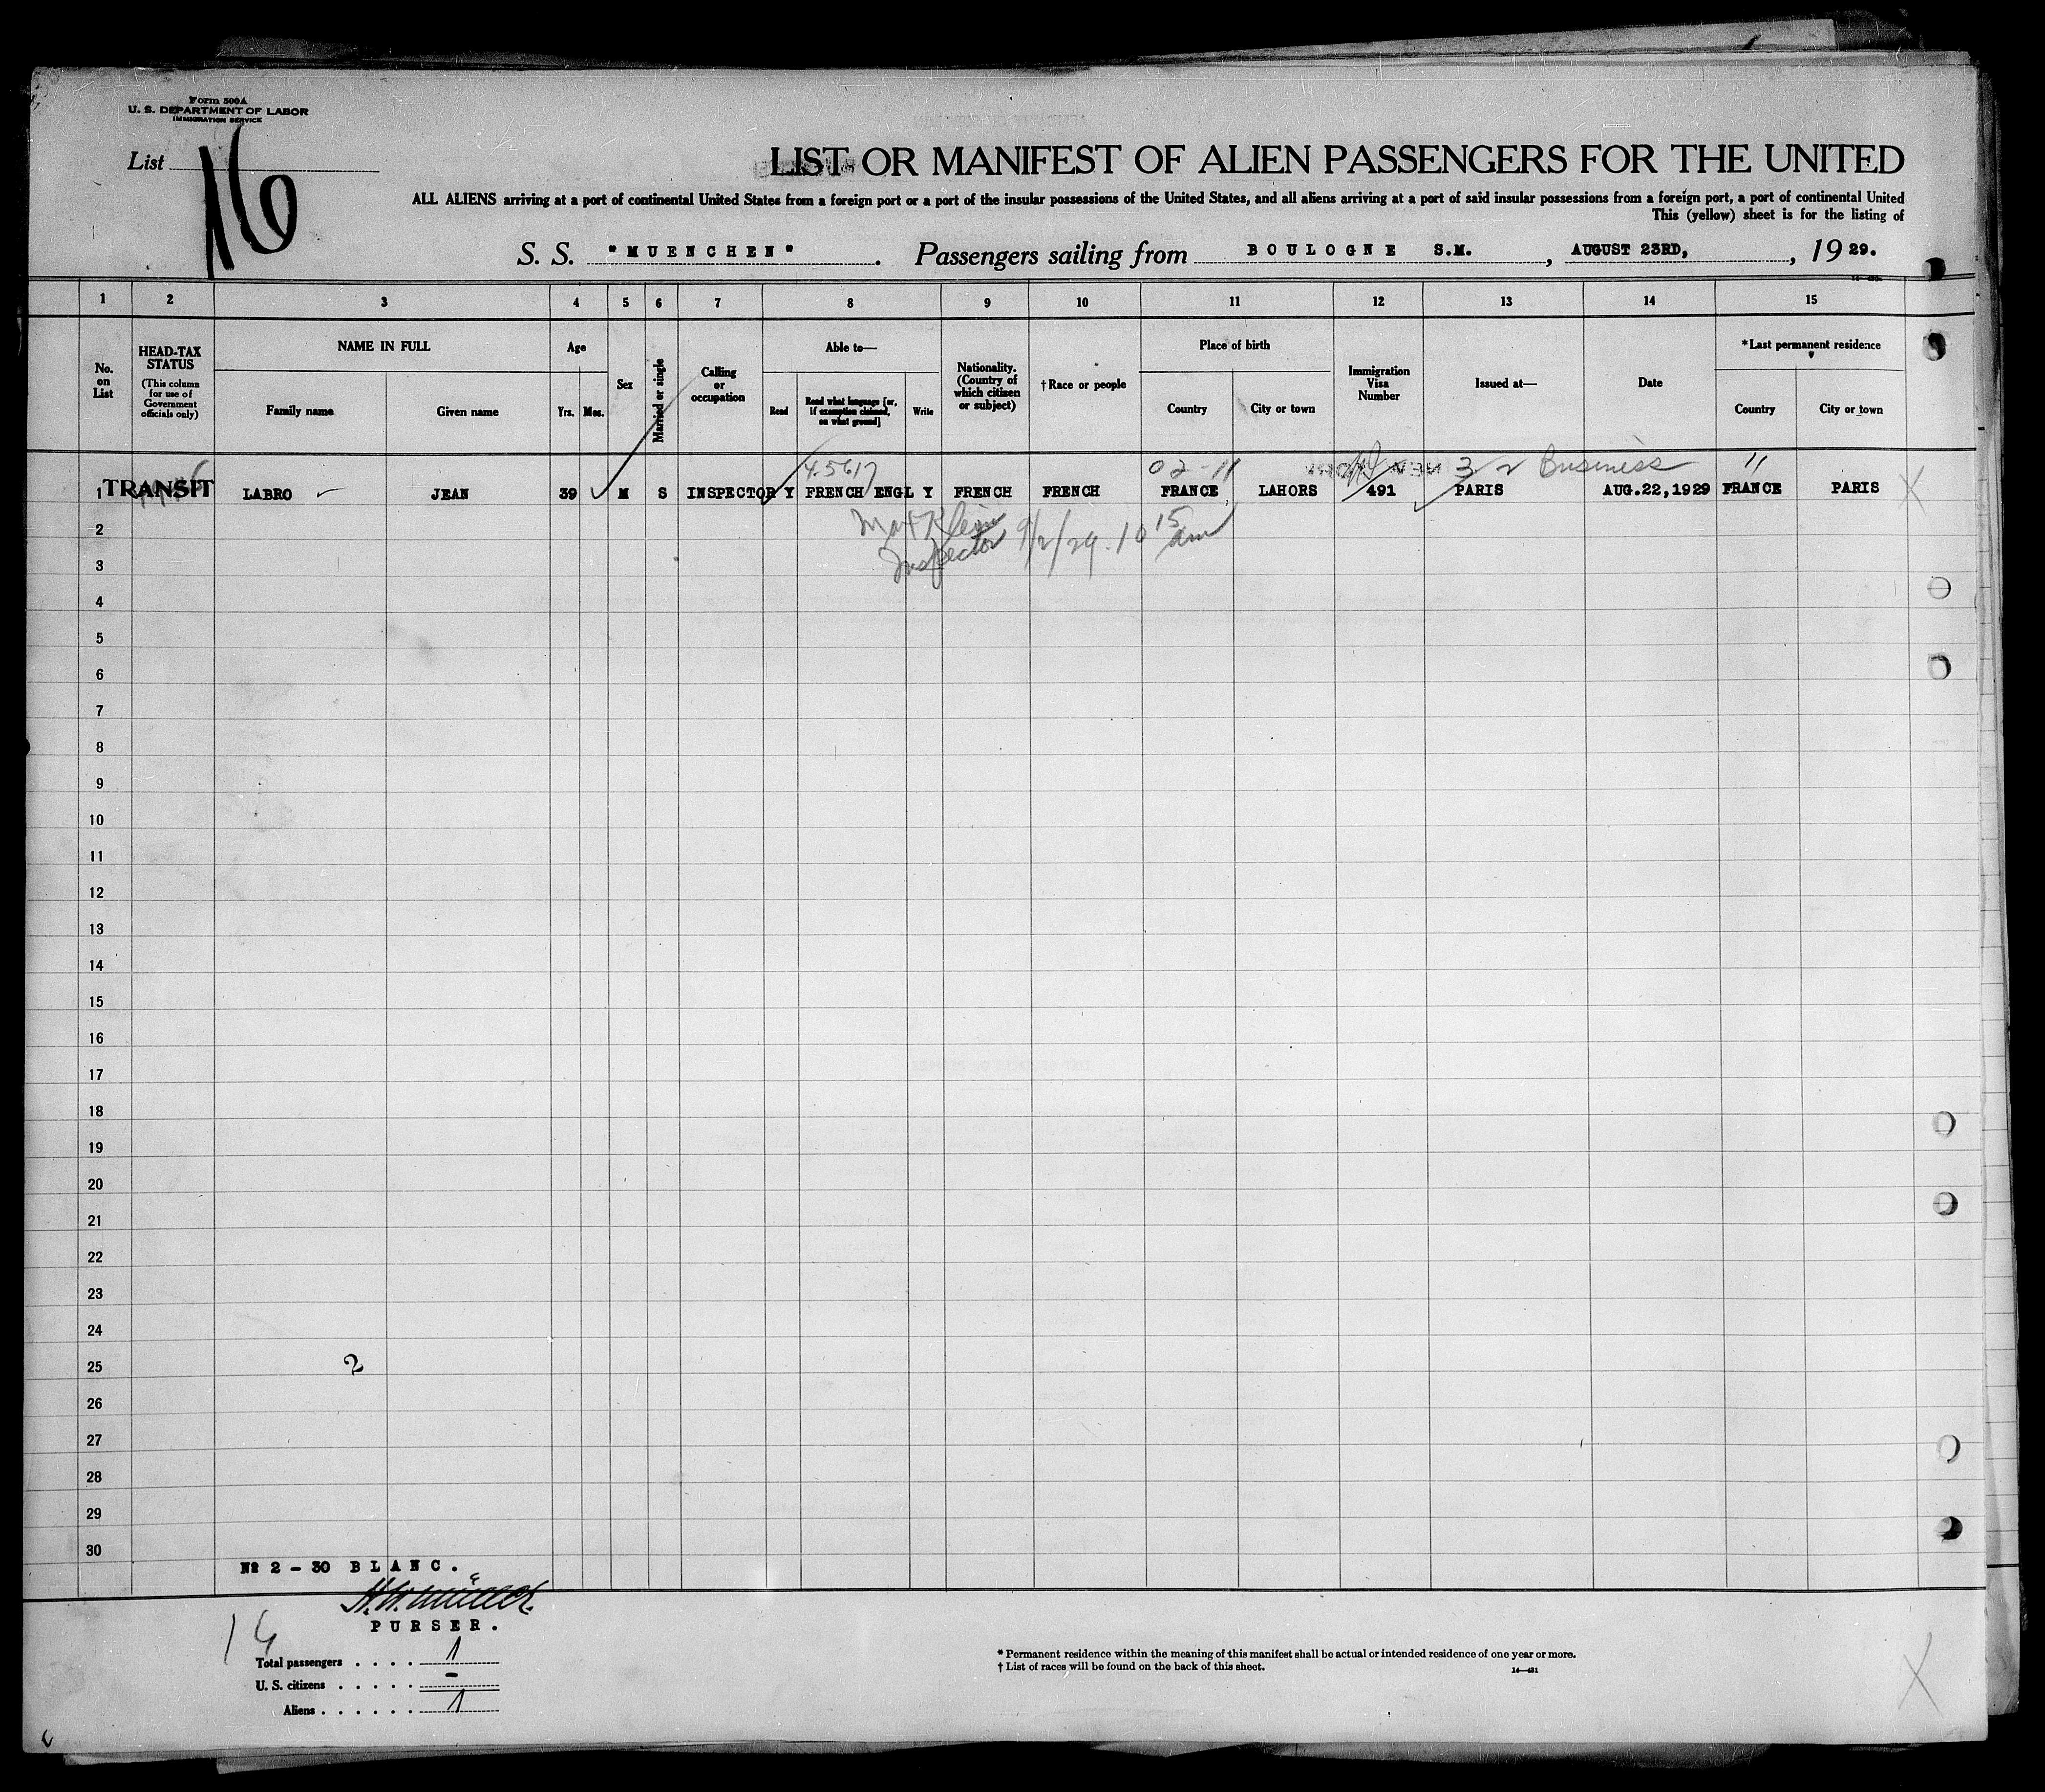 Form 500A
U. S. DEPARTMENT OF LABOR
IMMIGRATION SERVICE
List 16
LIST OR MANIFEST OF ALIEN PASSENGERS FOR THE UNITED
ALL ALIENS arriving at a port of continental United States from a foreign port or a port of the insular possessions of the United States, and all aliens arriving at a port of said insular possessions from a foreign port, a port of continental United
This (yellow) sheet is for the listing of
S. S. "MUENCHEN". Passengers sailing from BOULOGNE S.M., AUGUST 23RD, 1929.
1 2 3 4 5 6 7 8 9 10 11 12 13 14 15
No. on List
HEAD-TAX STATUS (This column for use of Government officials only)
NAME IN FULL
Family name
Given name
Age
Yrs. Mos.
Sex
Married or single
Calling or occupation
Able to—
Read
Read what language [or, if exemption claimed, on what ground]
Write
Nationality. (Country of which citizen or subject)
† Race or people
Place of birth
Country
City or town
Immigration Visa Number
Issued at—
Date
* Last permanent residence
Country
City or town
4.5617 02-11 3 2 Business "
1 TRANSIT LABRO JEAN 39 M S INSPECTOR Y FRENCH ENGL Y FRENCH FRENCH FRANCE LAHORS 491 PARIS AUG.22,1929 FRANCE PARIS X
Max Klein
Inspector 9/2/29. 10 15 am
2
3
4
5
6
7
8
9
10
11
12
13
14
15
16
17
18
19
20
21
22
23
24
25 2
26
27
28
29
30
No 2 - 30 BLANC.
PURSER.
16
Total passengers . . . . 1
U. S. citizens . . . . . -
Aliens . . . . . . 1
* Permanent residence within the meaning of this manifest shall be actual or intended residence of one year or more.
† List of races will be found on the back of this sheet.
14—431
X